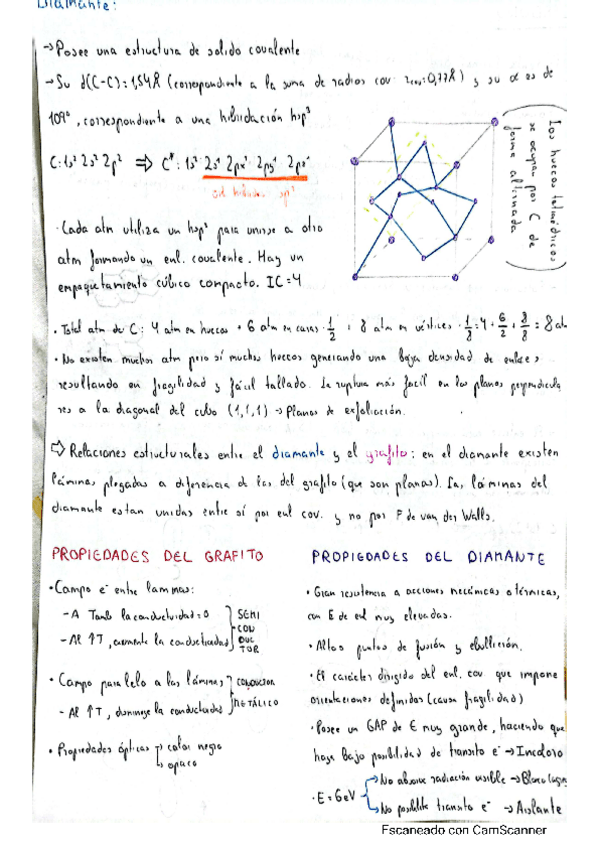 Diamante:
→Posee una estructura de solido covalente
→Su d(C-C): 1,54Å (correspondiente a la suma de radios cov. rcov=0,77Å) y su α es de
109º, correspondiente a una hibridación hsp³
C: 1s² 2s² 2p² ⇒ C*: 1s² 2s¹ 2px¹ 2py¹ 2pz¹
sp³
Los huecos tetraédricos
se ocupan por C de
forma alternada
· Cada atm utiliza un hsp³ para unirse a otro
atm formando un enl. covalente. Hay un
empaquetamiento cúbico compacto. IC=4
· Total atm de C: 4 atm en huecos + 6 atm en caras · 1/2 + 8 atm en vértices · 1/8 = 4 + 6/2 + 8/8 = 8 at
· No existen muchos atm pero sí muchos huecos generando una baja densidad de enlaces
resultando en fragilidad y fácil tallado. La ruptura más facil en los planos perpendicula
res a la diagonal del cubo (1,1,1) → Planos de exfoliación.
⇨ Relaciones estructurales entre el diamante y el grafito: en el diamante existen
láminas plegadas a diferencia de las del grafito (que son planas). Las láminas del
diamante estan unidas entre sí por enl cov. y no por F de van der Walls.
PROPIEDADES DEL GRAFITO
· Campo e⁻ entre laminas:
- A Tamb la conductividad = 0
- Al ↑T, aumenta la conductividad
SEMI
CON
DUC
TOR
· Campo paralelo a las láminas
- Al ↑T, disminuye la conductividad
CONDUCTOR
METÁLICO
· Propiedades ópticas → color negro
→ opaco
PROPIEDADES DEL DIAMANTE
· Gran resistencia a acciones mecánicas o térmicas,
con E de enl muy elevadas.
· Altos puntos de fusión y ebullición.
· El carácter dirigido del enl. cov. que impone
orientaciones definidas (causa fragilidad)
· Posee un GAP de E muy grande, haciendo que
haya baja posibilidad de transito e⁻ → Incoloro
· E = 6eV
→ No absorve radiación visible →
→ No posibilita transito e⁻ → Aislante
Escaneado con CamScanner